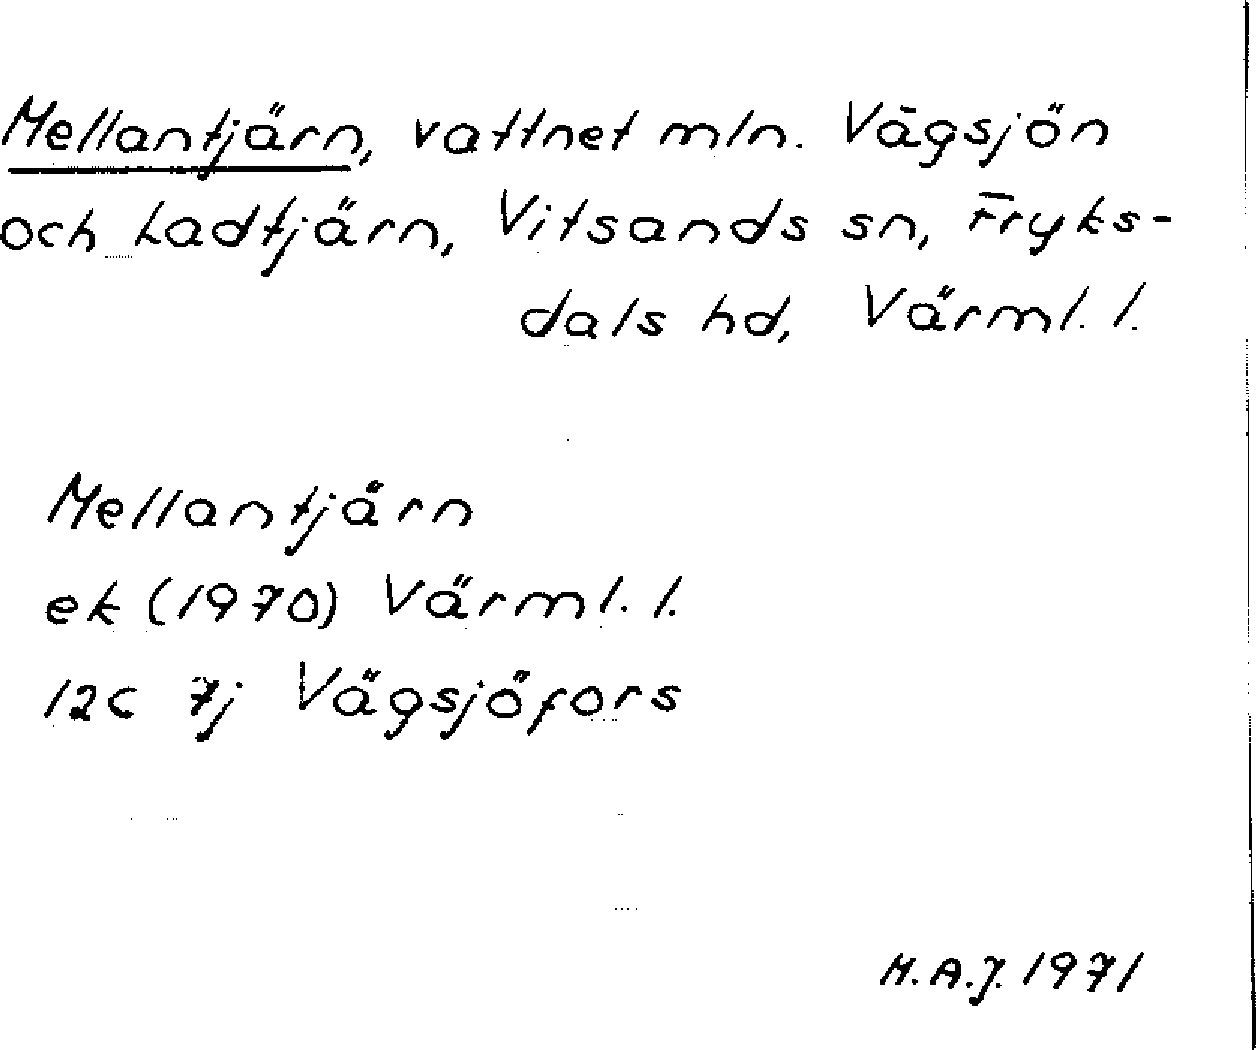 Mellantjärn, vattnet mln. Vägsjön
och Ladtjärn, Vitsands sn, Fryks-
dals hd, Värml. l.
Mellantjärn
ek (1970) Värml. l.
12c 7j Vägsjöfors
M.A.J. 1971